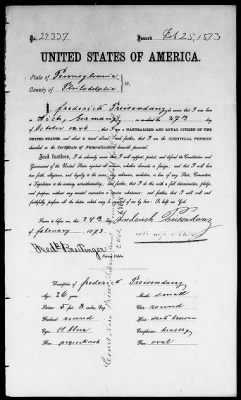 No. 27337 Issued Feb 25, 1873
UNITED STATES OF AMERICA.
State of Pennsylvania
County of Philadelphia ss.
I frederick Preisendanz do swear that I was born
in Germany on or about the 27th day
of October 1846 that I am a NATURALIZED AND LOYAL CITIZEN OF THE
UNITED STATES, and about to travel abroad; and further, that I am the IDENTICAL PERSON
described in the Certificate of Naturalization herewith presented.
And further, I do solemnly swear that I will support, protect, and defend the Constitution and Government
of the United States against all enemies, whether domestic or foreign; and that I will bear
true faith, allegiance, and loyalty to the same, any ordinance, resolution, or law of any State, Convention,
or Legislature to the contrary notwithstanding; and further, that I do this with a full determination, pledge, and
purpose, without any mental reservation or evasion whatsoever; and further, that I will well and faithfully
perform all the duties which may be required of me by law: So help me God.
Sworn to before me, this 24th day frederick Preisendanz
of february 1873
Notary Public.
Description of frederick Preisendanz
Age: 26 years Mouth: small
Stature: 5 feet 8 inches, Eng. Chin: round
Forehead: round Hair: dark brown
Eyes: Complexion: healthy
Nose: Face: oval